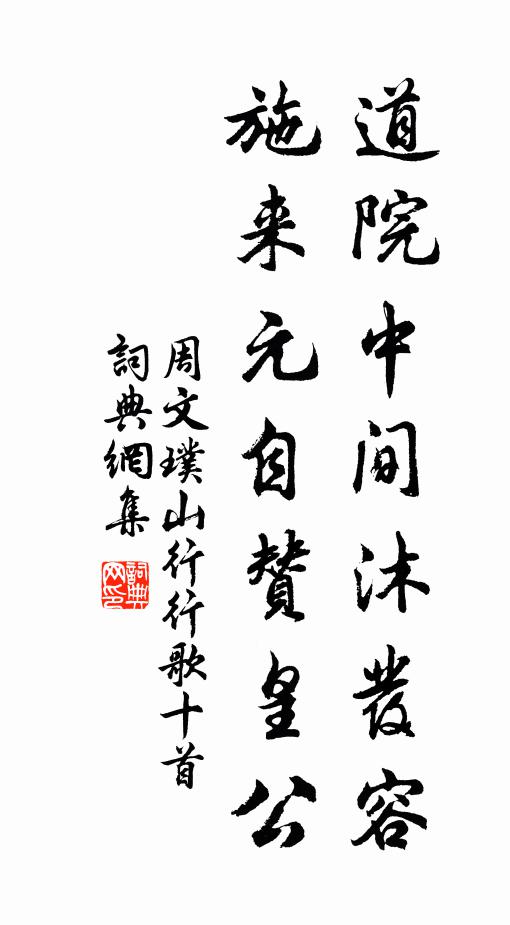 道院中间沐发容
施来元自赞皇公
周文璞山行行歌十首
词典网集
词典网印